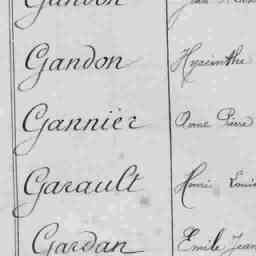 Gandon Jean
Gandon Hyacinthe
Gannier Anne Pierre
Garault Henri Louis
Gardan Emile Jean